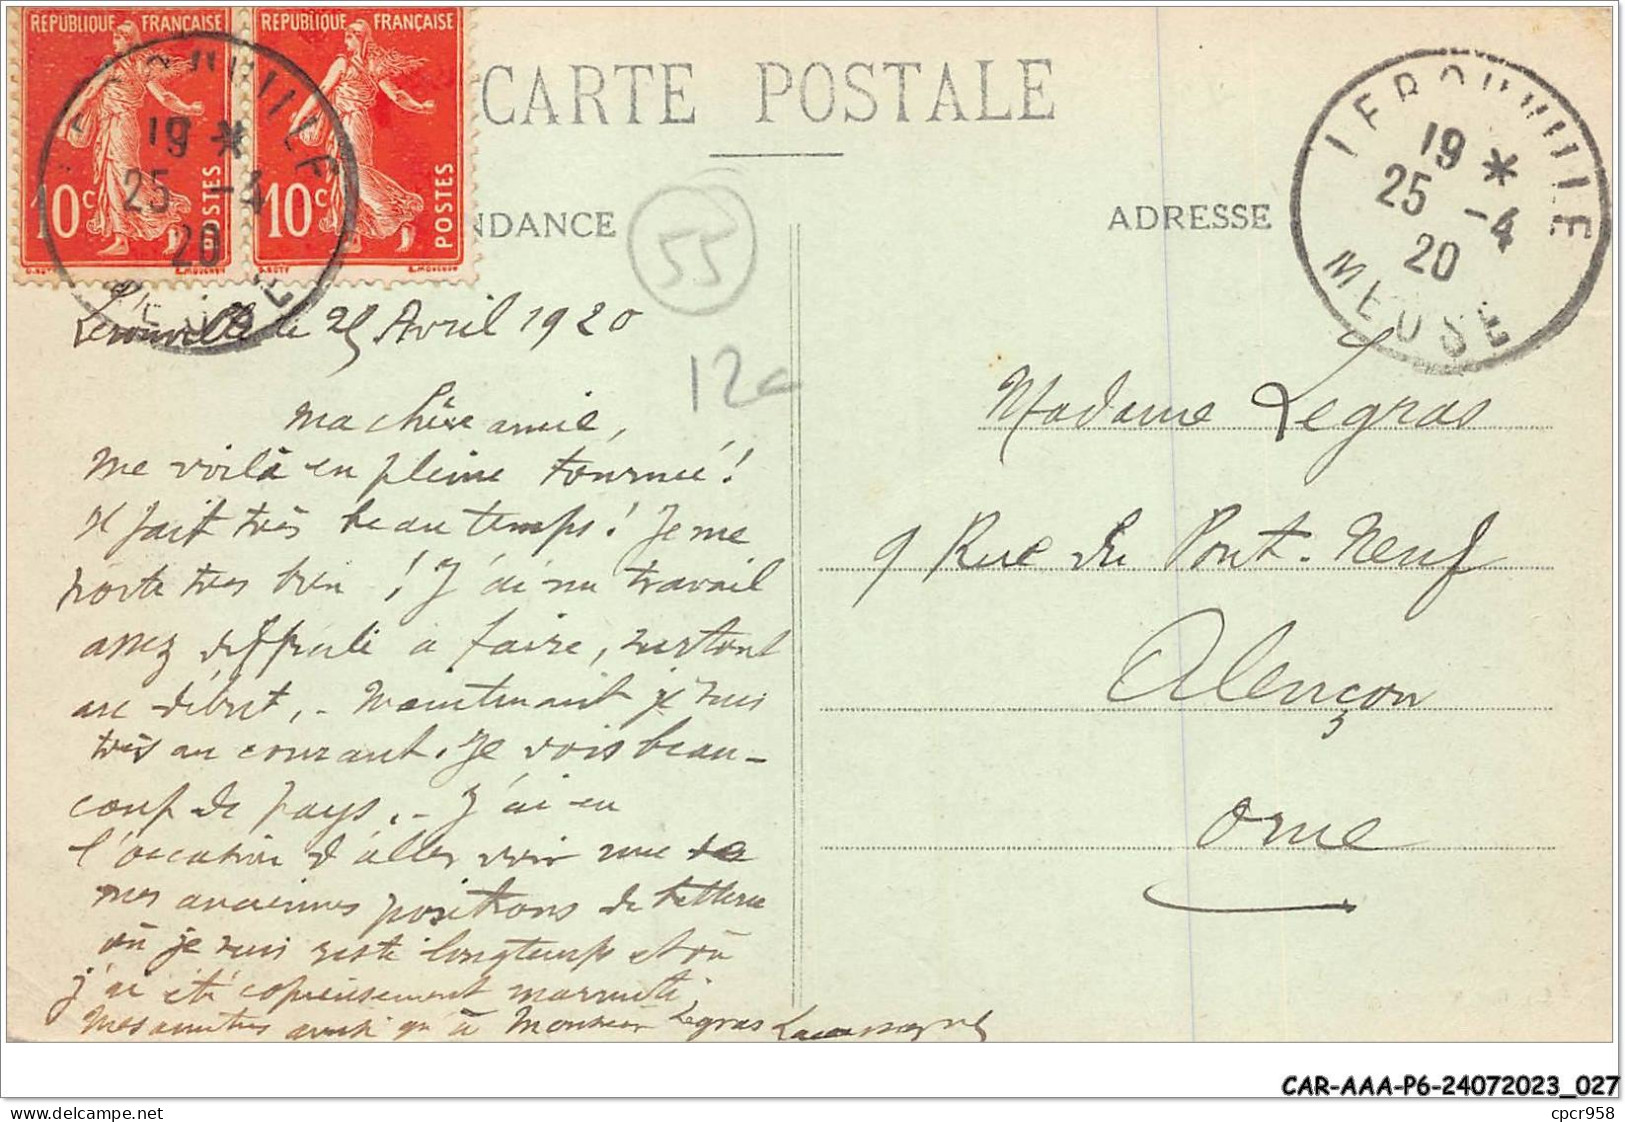 RÉPUBLIQUE FRANÇAISE
10c POSTES
RÉPUBLIQUE FRANÇAISE
10c POSTES
CARTE POSTALE
NDANCE
ADRESSE
LEROUVILLE
19 *
25 -4
20
MEUSE
LEROUVILLE
19 *
25 -4
20
MEUSE
55
12c
Lérouville le 25 Avril 1920
Ma chère amie,
Me voilà en pleine tournée!
Il fait très beau temps! Je me
porte très bien! J'ai un travail
assez difficile à faire, surtout
au début,. Maintenant je suis
très au courant. Je vois beau-
coup de pays.- J'ai eu
l'occasion d'aller voir une de
mes anciennes positions de batterie
où je suis resté longtemps et où
j'ai été copieusement marmité;
Mes amitiés ainsi qu'à Monsieur Legras
Madame Legras
9 Rue du Pont-Neuf
Alençon
Orne
CAR-AAA-P6-24072023_027
cpcr958